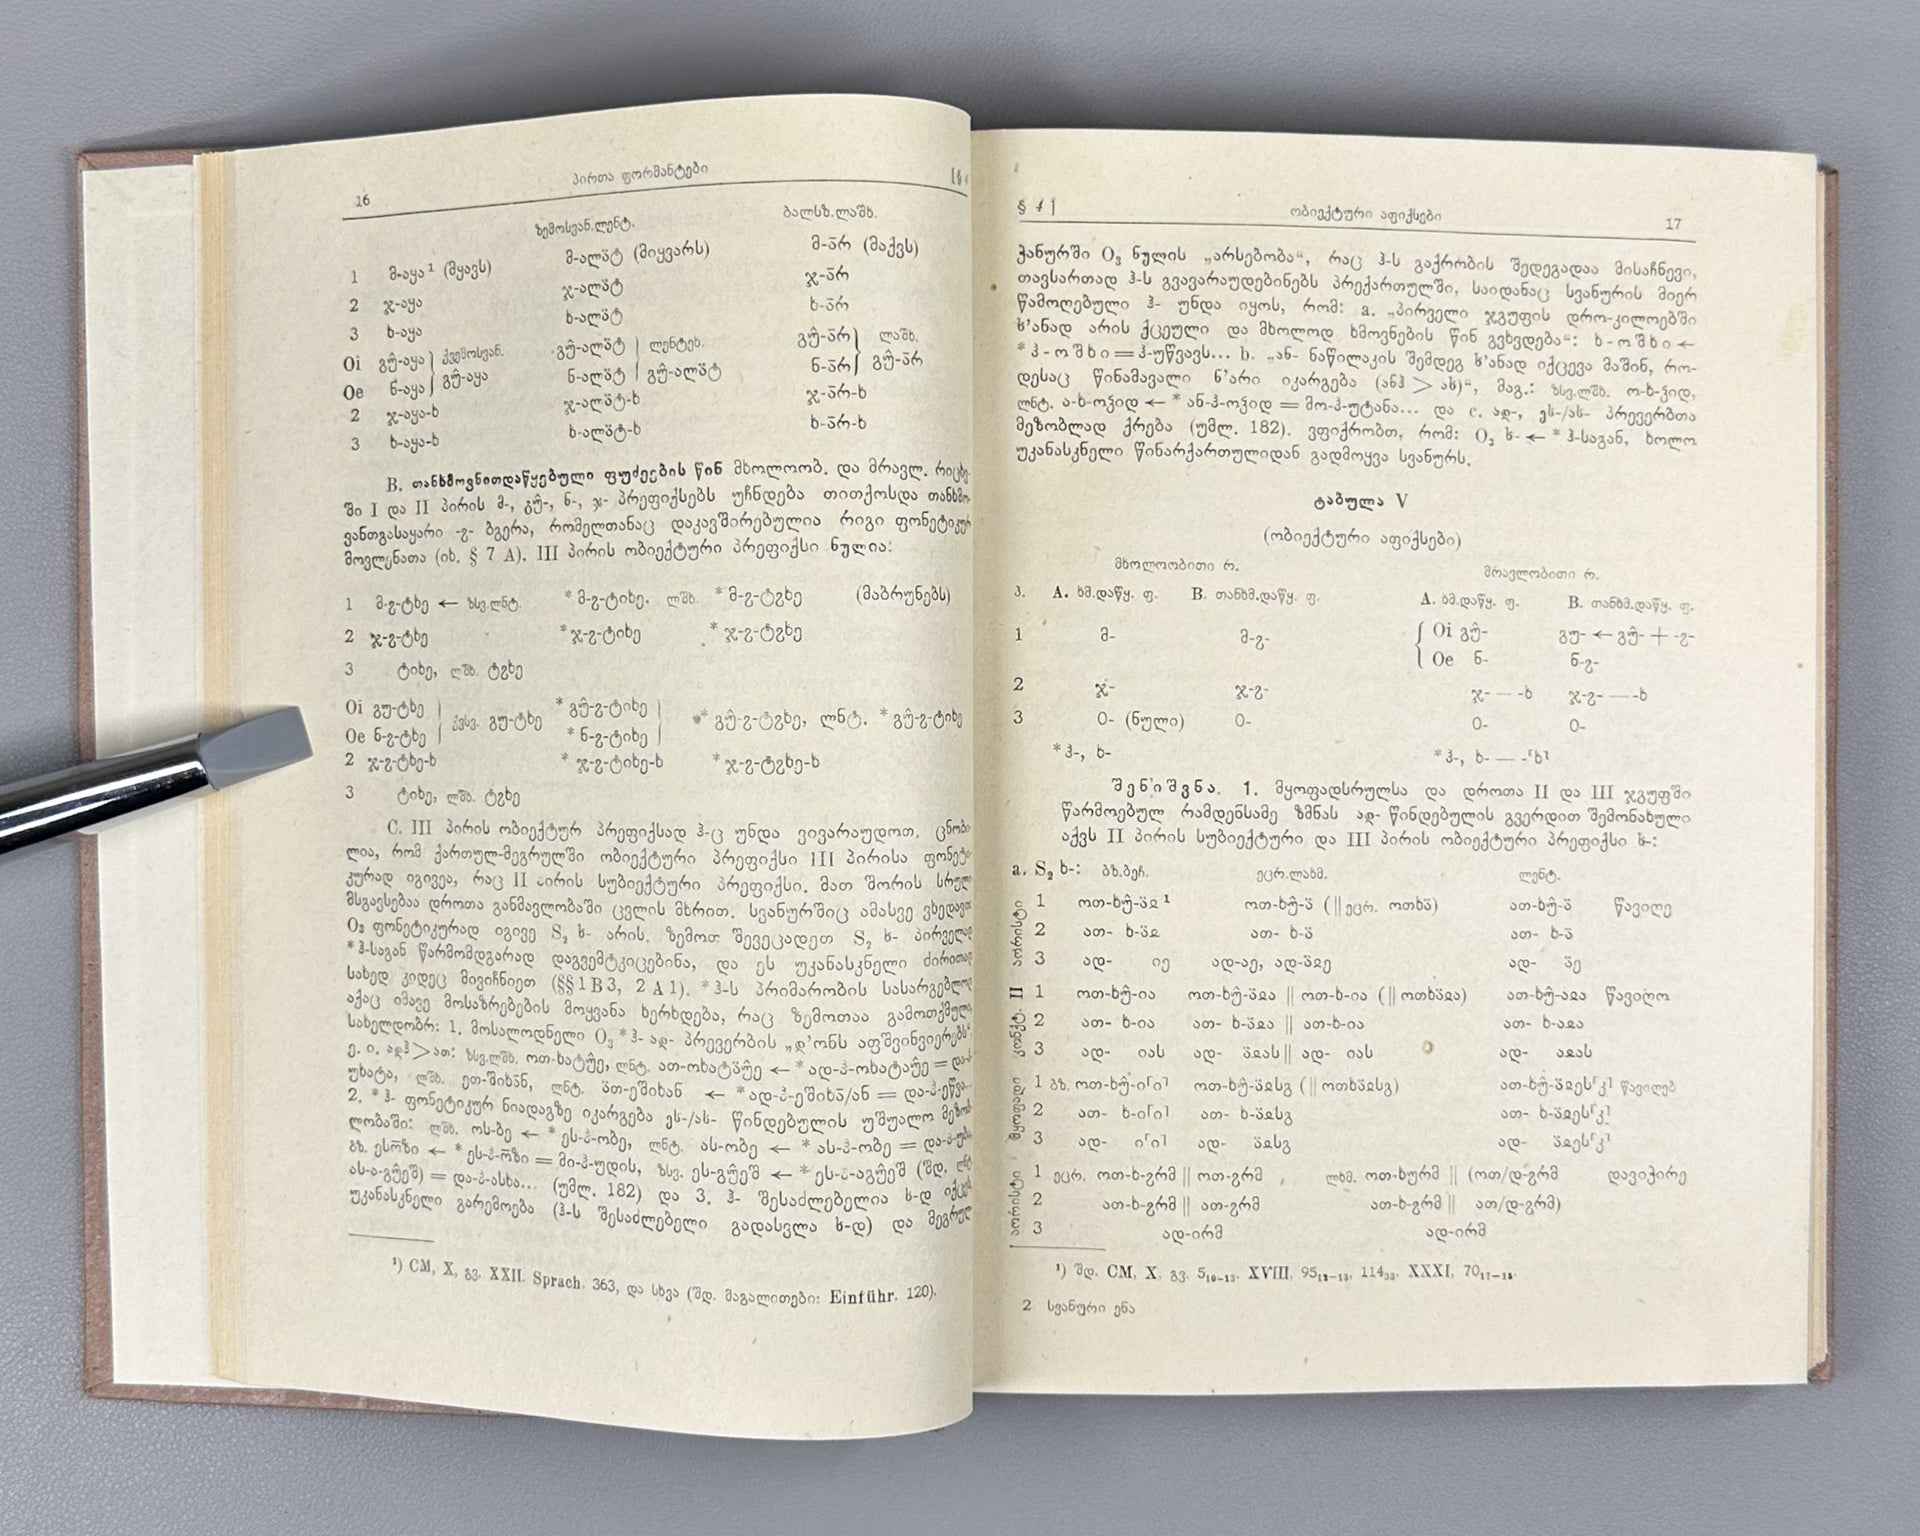 16
პირთა ფორმანტები
[§
ზემოსვან.ლენტ.
ბალსზ.ლაშხ.
1 მ-აყა¹ (მყავს) მ-ალა̈ტ (მიყვარს) მ-ა̄რ (მაქვს)
2 ჯ-აყა ჯ-ალა̈ტ ჯ-ა̄რ
3 ხ-აყა ხ-ალა̈ტ ხ-ა̄რ
Oi გუ̂-აყა ქვემოსვან. გუ̂-ალა̈ტ ლენტეხ. გუ̂-ა̄რ ლაშხ.
Oe ნ-აყა გუ̂-აყა ნ-ალა̈ტ გუ̂-ალა̈ტ ნ-ა̄რ გუ̂-ა̄რ
2 ჯ-აყა-ხ ჯ-ალა̈ტ-ხ ჯ-ა̄რ-ხ
3 ხ-აყა-ხ ხ-ალა̈ტ-ხ ხ-ა̄რ-ხ
B. თანხმოვნითდაწყებული ფუძეების წინ მხოლოობ. და მრავლ.
ში I და II პირის მ-, გუ̂-, ნ-, ჯ- პრეფიქსებს უჩნდება თითქოსდა
ვანთგასაყარი -ჷ- ბგერა, რომელთანაც დაკავშირებულია რიგი
მოვლენათა (იხ. § 7 A). III პირის ობიექტური პრეფიქსი ნულია:
1 მ-ჷ-ტხე ← ზსვ.ლნტ. *მ-ჷ-ტიხე. ლშხ. *მ-ჷ-ტჷხე (მაბრუნებს)
2 ჯ-ჷ-ტხე *ჯ-ჷ-ტიხე *ჯ-ჷ-ტჷხე
3 ტიხე, ლშხ. ტჷხე
Oi გუ-ტხე ქვსვ. გუ-ტხე *გუ̂-ჷ-ტიხე *გუ̂-ჷ-ტჷხე, ლნტ. *გუ̂-ჷ-ტიხე
Oe ნ-ჷ-ტხე *ნ-ჷ-ტიხე
2 ჯ-ჷ-ტხე-ხ *ჯ-ჷ-ტიხე-ხ *ჯ-ჷ-ტჷხე-ხ
3 ტიხე, ლშხ. ტჷხე
C. III პირის ობიექტურ პრეფიქსად ჰ-ც უნდა ვივარაუდოთ.
ლია, რომ ქართულ-მეგრულში ობიექტური პრეფიქსი III პირისა
კურად იგივეა, რაც II პირის სუბიექტური პრეფიქსი. მათ შორის
მსგავსებაა დროთა განმავლობაში ცვლის მხრით. სვანურშიც ამასვე
O₃ ფონეტიკურად იგივე S₂ ხ- არის. ზემოთ შევეცადეთ S₂ ხ-
*ჰ-საგან წარმომდგარად დაგვემტკიცებინა, და ეს უკანასკნელი
სახედ კიდეც მივიჩნიეთ (§§ 1 B 3, 2 A 1). *ჰ-ს პრიმარობის
აქაც იმავე მოსაზრებების მოყვანა ხერხდება, რაც ზემოთაა
სახელდობრ: 1. მოსალოდნელი O₃ *ჰ- ად- პრევერბის „დ'ონს
ე. ი. ადჰ>ათ: ზსვ.ლშხ. ოთ-ხატუ̂ე, ლნტ. ათ-ოხატა̈უ̂ე ← *ად-ჰ-ოხატაუ̂ე =
უხატა, ლშხ. ეთ-შიხა̄ნ, ლნტ. ა̈თ-ეშიხან ← *ად-ჰ-ეშიხა̄/ან =
2. *ჰ- ფონეტიკურ ნიადაგზე იკარგება ეს-/ას- წინდებულის უშუალო
ლობაში: ლშხ. ოს-ბე ← *ეს-ჰ-ობე, ლნტ. ას-ობე ← *ას-ჰ-ობე =
ბზ. ესრ̄ზი ← *ეს-ჰ-რ̄ზი = მი-ჰ-უდის, ზსვ. ეს-გუ̂ეშ ← *ეს-ჰ-აგუ̂ეშ (შდ.
ას-ა-გუ̂ეშ) = და-ჰ-ასხა... (უმლ. 182) და 3. ჰ- შესაძლებელია ხ-დ
უკანასკნელი გარემოება (ჰ-ს შესაძლებელი გადასვლა ხ-დ) და
¹) СМ, X, გვ. XXII. Sprach. 363, და სხვა (შდ. მაგალითები: Einführ. 120).
§ 4]
ობიექტური აფიქსები
17
ჭანურში O₃ ნულის „არსებობა“, რაც ჰ-ს გაქრობის შედეგადაა მისაჩნევი,
თავსართად ჰ-ს გვავარაუდებინებს პრექართულში, საიდანაც სვანურის მიერ
წამოღებული ჰ- უნდა იყოს, რომ: a. „პირველი ჯგუფის დრო-კილოებში
ხ'ანად არის ქცეული და მხოლოდ ხმოვნების წინ გვხვდება“: ხ-ოშხი ←
*ჰ-ოშხი = ჰ-უწვავს... b. „ან- ნაწილაკის შემდეგ ხ'ანად იქცევა მაშინ, რო-
დესაც წინამავალი ნ'არი იკარგება (ანჰ > ახ)“, მაგ.: ზსვ.ლშხ. ო-ხ-ჴიდ,
ლნტ. ა-ხ-ოჴიდ ← *ან-ჰ-ოჴიდ = მო-ჰ-უტანა... და c. ად-, ეს-/ას- პრევერბთა
მეზობლად ქრება (უმლ. 182). ვფიქრობთ, რომ: O₃ ხ- ← *ჰ-საგან, ხოლო
უკანასკნელი წინარქართულიდან გადმოყვა სვანურს.
ტაბულა V
(ობიექტური აფიქსები)
მხოლოობითი რ. მრავლობითი რ.
პ. A. ხმ.დაწყ. ფ. B. თანხმ.დაწყ. ფ. A. ხმ.დაწყ. ფ. B. თანხმ.დაწყ. ფ.
1 მ- მ-ჷ- Oi გუ̂- გუ- ← გუ̂- + -ჷ-
Oe ნ- ნ-ჷ-
2 ჯ- ჯ-ჷ- ჯ- — -ხ ჯ-ჷ- — -ხ
3 0- (ნული) 0- 0- 0-
*ჰ-, ხ- *ჰ-, ხ- — -⸢ხ⸣
შენიშვნა. 1. მყოფადსრულსა და დროთა II და III ჯგუფში
წარმოებულ რამდენსამე ზმნას ად- წინდებულის გვერდით შემონახული
აქვს II პირის სუბიექტური და III პირის ობიექტური პრეფიქსი ხ-:
a. S₂ ხ-: ბზ.ბეჩ. ეცრ.ლახმ. ლენტ.
აორისტი
1 ოთ-ხუ̂-ა̈ჲ¹ ოთ-ხუ̂-ა̈ (|| ეცრ. ოთხა̈) ათ-ხუ̂-ა̈ წავიღე
2 ათ- ხ-ა̈ჲ ათ- ხ-ა̈ ათ- ხ-ა̈
3 ად- იე ად-აე, ად-ა̈ჲე ად- ა̈ე
კონქტ. II
1 ოთ-ხუ̂-ია ოთ-ხუ̂-ა̈ჲა || ოთ-ხ-ია (|| ოთხა̈ჲა) ათ-ხუ̂-აჲა წავიღო
2 ათ- ხ-ია ათ- ხ-ა̈ჲა || ათ-ხ-ია ათ- ხ-აჲა
3 ად- იას ად- ა̈ჲას || ად- იას ად- აჲას
მყოფადი
1 ბზ. ოთ-ხუ̂-ი⸢ი⸣ ოთ-ხუ̂-ა̈ჲსგ (|| ოთხა̈ჲსგ) ათ-ხუ̂-ა̈ჲეს⸢კ⸣ წავიღებ
2 ათ- ხ-ი⸢ი⸣ ათ- ხ-ა̈ჲსგ ათ- ხ-ა̈ჲეს⸢კ⸣
3 ად- ი⸢ი⸣ ად- ა̈ჲსგ ად- ა̈ჲეს⸢კ⸣
აორისტი
1 ეცრ. ოთ-ხ-ჷრმ || ოთ-ჷრმ ლხმ. ოთ-ხურმ || (ოთ/დ-ჷრმ დავიჭირე
2 ათ-ხ-ჷრმ || ათ-ჷრმ ათ-ხ-ჷრმ || ათ/დ-ჷრმ)
3 ად-ირმ ად-ირმ
¹) შდ. СМ, X, გვ. 5₁₀₋₁₃. XVIII, 95₁₂₋₁₃, 114₃₃. XXXI, 70₁₇₋₁₈.
2 სვანური ენა